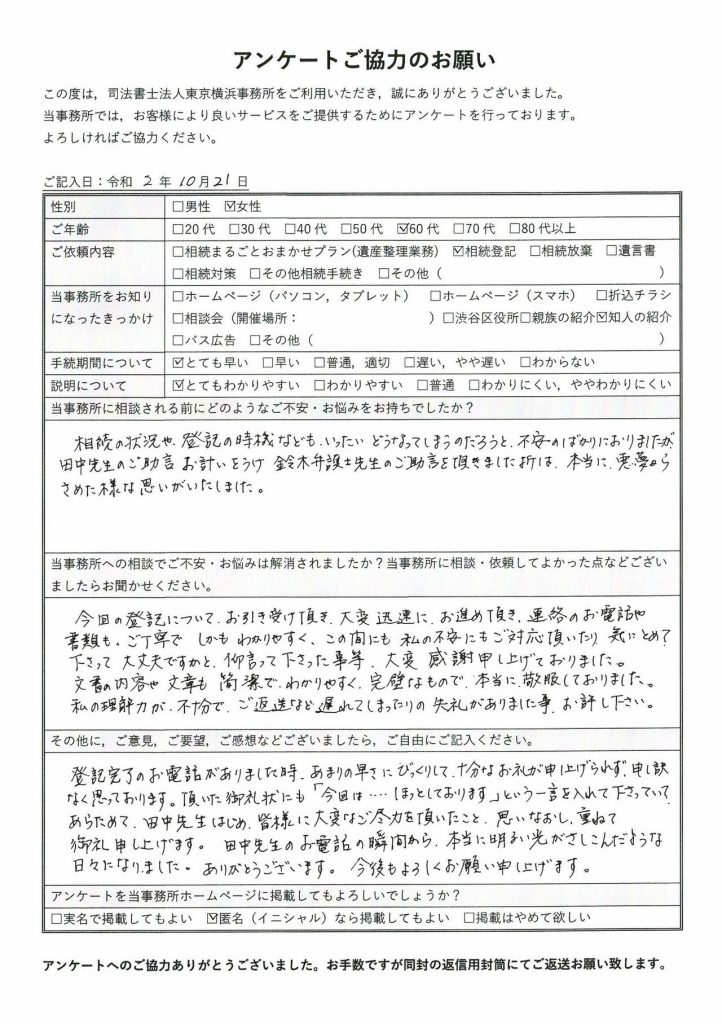 アンケートご協力のお願い
この度は，司法書士法人東京横浜事務所をご利用いただき，誠にありがとうございました。
当事務所では，お客様により良いサービスをご提供するためにアンケートを行っております。
よろしければご協力ください。
ご記入日：令和 2 年 10 月 21 日
性別 □男性 ☑女性
ご年齢 □20 代 □30 代 □40 代 □50 代 ☑60 代 □70 代 □80 代以上
ご依頼内容 □相続まるごとおまかせプラン(遺産整理業務) ☑相続登記 □相続放棄 □遺言書
□相続対策 □その他相続手続き □その他（ ）
当事務所をお知り □ホームページ（パソコン，タブレット） □ホームページ（スマホ） □折込チラシ
になったきっかけ □相談会（開催場所： ）□渋谷区役所□親族の紹介☑知人の紹介
□バス広告 □その他（ ）
手続期間について ☑とても早い □早い □普通，適切 □遅い，やや遅い □わからない
説明について ☑とてもわかりやすい □わかりやすい □普通 □わかりにくい，ややわかりにくい
当事務所に相談される前にどのようなご不安・お悩みをお持ちでしたか？
相続の状況や、登記の時機なども、いったい どうなってしまうのだろうと、不安のばかりにおりましたが
田中先生のご助言 お計いをうけ 鈴木弁護士先生のご助言を頂きました折は、本当に、悪夢から
さめた様な思いがいたしました。
当事務所への相談でご不安・お悩みは解消されましたか？当事務所に相談・依頼してよかった点などござい
ましたらお聞かせください。
今回の登記について、お引き受け頂き、大変 迅速に、お進め頂き、連絡のお電話や
書類も、ご丁寧で しかも わかりやすく、この間にも 私の不安にもご対応頂いたり 気にとめて
下さって 大丈夫ですかと、仰言って下さった事等、大変 感謝申し上げておりました。
文書の内容や 文章も 簡潔で、わかりやすく、完璧なもので、本当に、敬服しておりました。
私の理解力が、不十分で、ご返送など遅れてしまったりの 失礼がありました事、お許し下さい。
その他に，ご意見，ご要望，ご感想などございましたら，ご自由にご記入ください。
登記完了のお電話がありました時、あまりの早さに びっくりして、十分なお礼が申上げられず、申し訳
なく思っております。頂いた御礼状にも「今回は‥‥ほっとしております」という一言を入れて下さっていて
あらためて、田中先生はじめ、皆様に大変なご尽力を頂いたこと、思いなおし、重ねて
御礼 申し上げます。 田中先生の お電話の瞬間から、本当に明るい光がさしこんだような
日々になりました。ありがとうございます。 今後もよろしくお願い申し上げます。
アンケートを当事務所ホームページに掲載してもよろしいでしょうか？
□実名で掲載してもよい ☑匿名（イニシャル）なら掲載してもよい □掲載はやめて欲しい
アンケートへのご協力ありがとうございました。お手数ですが同封の返信用封筒にてご返送お願い致します。